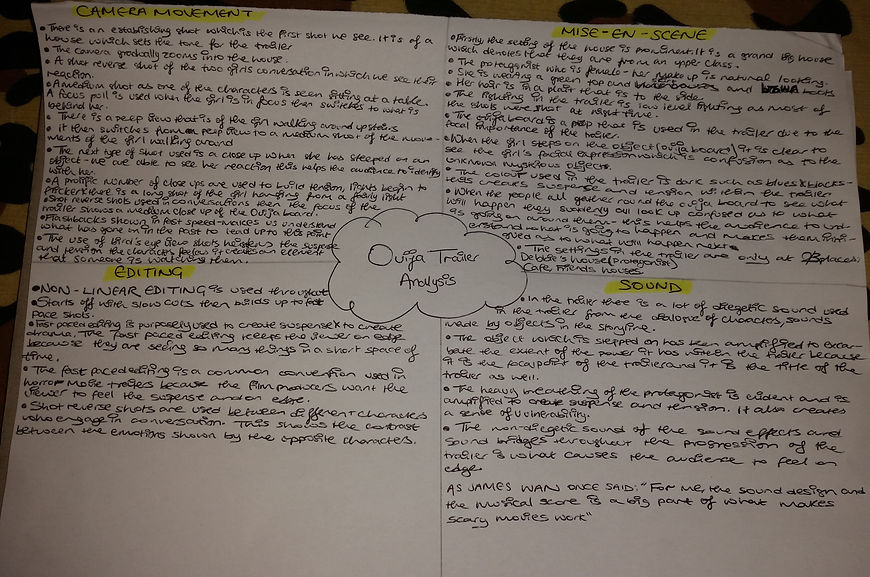 CAMERA MOVEMENT
• There is an establishing shot which is the first shot we see. It is of a
house which sets the tone for the trailer
• The camera gradually zooms into the house.
• A shot reverse shot of the two girls conversation in which we see their
reaction.
• A medium shot as one of the characters is seen sitting at a table.
A focus poll is used when the girl is in focus then switches to what is
behind her.
• There is a peep view that is of the girl walking around upstairs
• It then switches from a peep view to a medium shot of the move-
ments of the girl walking around
• The next type of shot used is a close up when she has stepped on an
object - we are able to see her reaction this helps the audience to identify
with her.
• A prolific number of close ups are used to build tension, lights begin to
flicker there is a long shot of the girl hanging from a fairly light
• Shot reverse shots used in conversations then the focus of the
trailer shows a medium close up of the Ouija board
• Flashbacks shown in fast speed - makes us understand
what has gone on in the past to lead up to this point.
• The use of bird's eye view shots heightens the suspense
and tension the character feels as it creates an element
that someone is watching them.
EDITING
• NON-LINEAR EDITING is used throughout
• Starts off with slow cuts then builds up to fast
pace shots.
• Fast paced editing is purposely used to create suspense & to create
drama. The fast paced editing keeps the viewer on edge
because they are seeing so many things in a short space of
time.
• The fast paced editing is a common convention used in
horror movie trailers because the film producers want the
viewer to feel the suspense and on edge.
• Shot reverse shots are used between different characters
who engage in conversation. This shows the contrast
between the emotions shown by the opposite characters.
Ouija Trailer
Analysis
MISE-EN-SCENE
• Firstly, the setting of the house is prominent. It is a grand big house
which denotes that they are from an upper class.
• The protagonist who is female - her make up is natural looking.
• She is wearing a green top and and
• Her hair is in a plait that is to the side.
• The lighting in the trailer is low level lighting as most of
the shots were at night time.
• The ouija board is a prop that is used in the trailer due to the
focal importance of the trailer.
• When the girl steps on the object (ouija board) it is clear to
see the girl's facial expression which is confusion as to the
unknown mysterious object.
• The colour used in the trailer is dark such as blues & blacks -
this creates suspense and tension within the trailer
• When the people all gather round the ouija board to see what
will happen they suddenly all look up confused as to what
is going on around them - this helps the audience to und-
erstand what is going to happen and makes them intri-
gued as to what will happen next.
• The settings in the trailer are only at 3 places:
Debbie's house (protagonist)
Cafe, Friends houses
SOUND
• In the trailer there is a lot of diegetic sound used
in the trailer from the dialogue of characters, sounds
made by objects in the storyline.
• The object which is stepped on has been amplified to
the extent of the power it has within the trailer because
it is the focal point of the trailer and it is the title of the
trailer as well.
• The heavy breathing of the protagonist is evident and is
amplified to create suspense and tension. It also creates
a sense of vulnerability.
• The non-diegetic sound of the sound effects and
sound bridges throughout the progression of the
trailer is what causes the audience to feel on
edge
AS JAMES WAN ONCE SAID: "For me, the sound design and
the musical score is a big part of what makes
scary movies work"